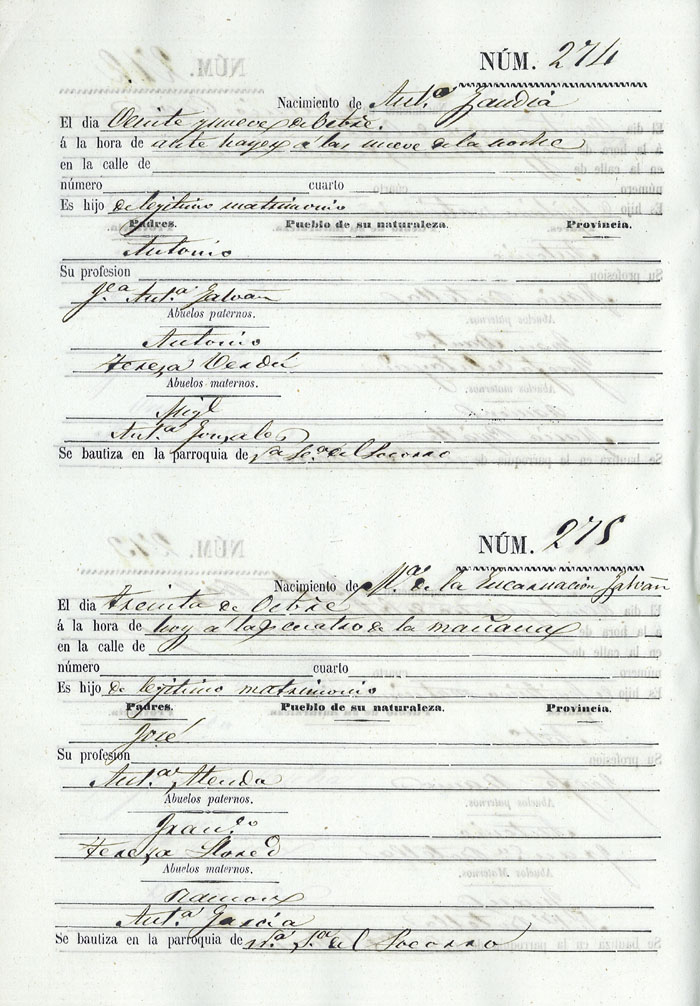 NÚM. 274
Nacimiento de Ant.ª Gandia
El dia Veinte y nueve de Octbre.
á la hora de ante hayer a las nueve de la noche
en la calle de
número cuarto
Es hijo de legitimo matrimonio
Padres. Pueblo de su naturaleza. Provincia.
Antonio
Su profesion
y Ant.ª Galvañ
Abuelos paternos.
Antonio
Tereza Verdú
Abuelos maternos.
Migl
Ant.ª Gonzales
Se bautiza en la parroquia de del Socorro
NÚM. 275
Nacimiento de M.ª de la Encarnación Galvañ
El dia Treinta de Octbre
á la hora de hoy a las cuatro de la mañana
en la calle de
número cuarto
Es hijo de legitimo matrimonio
Padres. Pueblo de su naturaleza. Provincia.
José
Su profesion
Ant.ª
Abuelos paternos.
Fran.co
Tereza Llored
Abuelos maternos.
Ramon
Ant.ª Garcia
Se bautiza en la parroquia de N.ª S.ª del Socorro